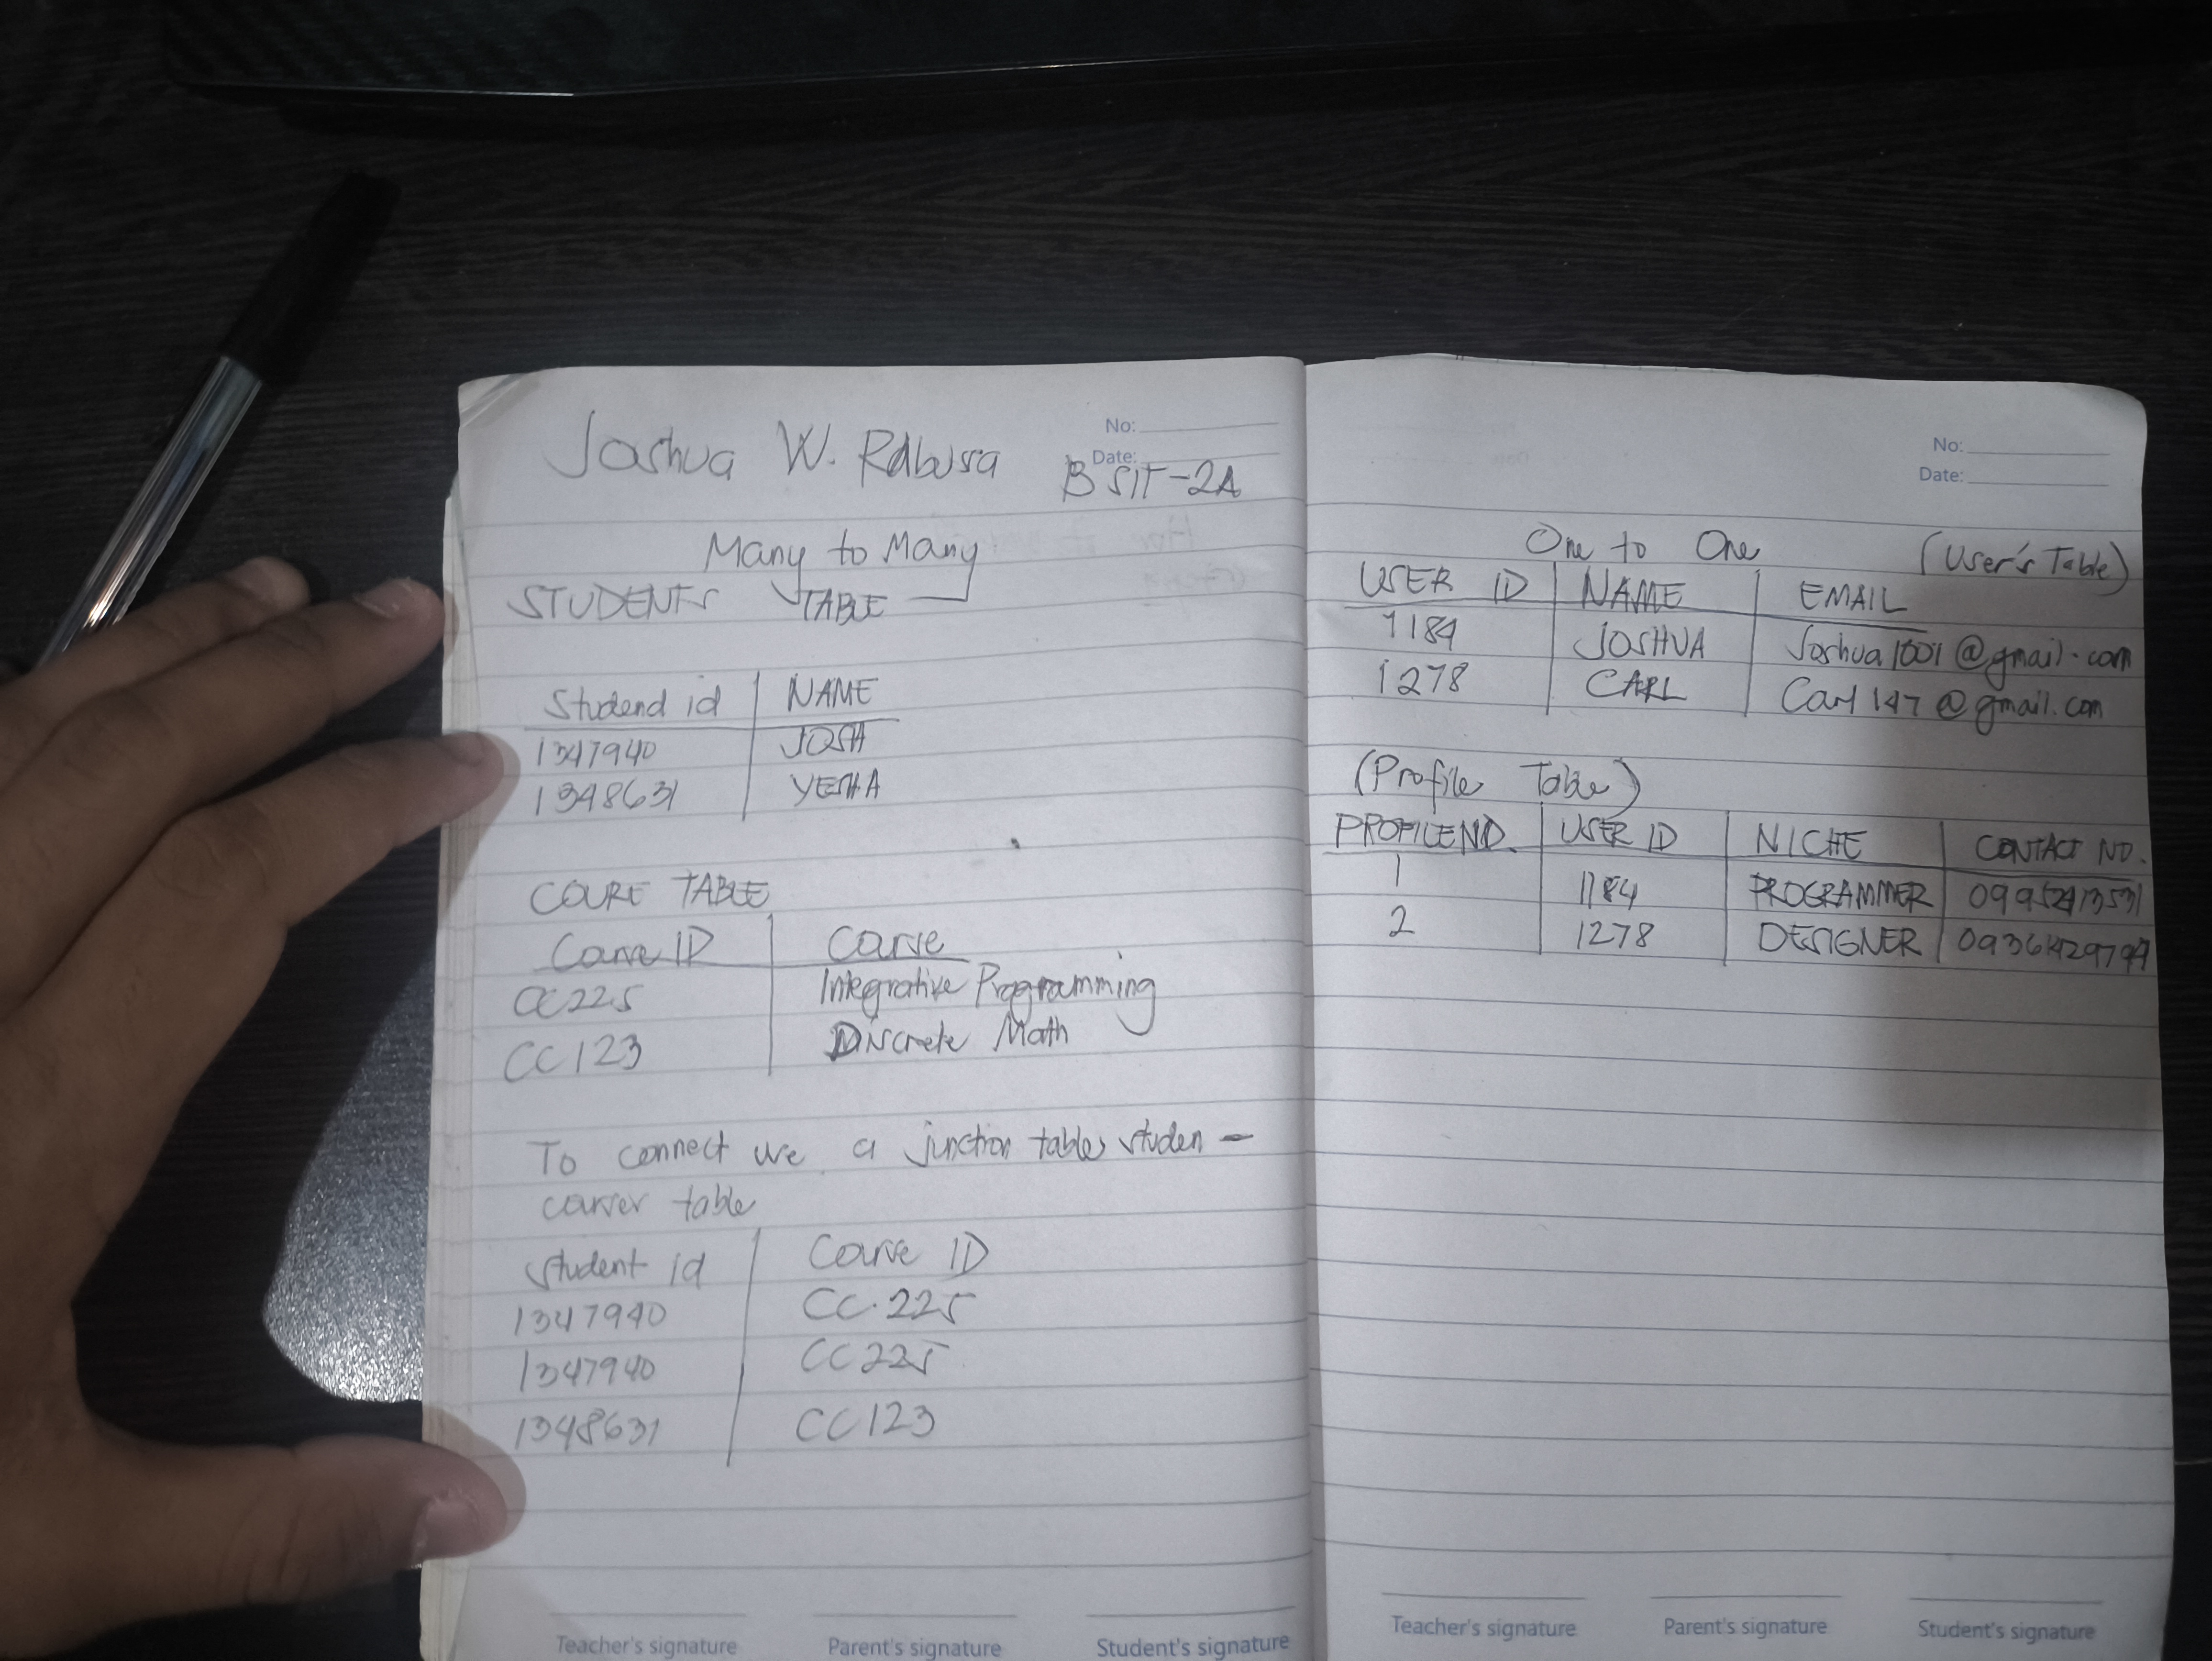 No:
Date:
Joshua W. Rabusa
BSIT-2A
Many to Many
STUDENTS TABLE
Studend id NAME
1347940 JOSH
1348631 YESHA
COURE TABLE
Course ID Course
CC225 Integrative Programming
CC123 Discrete Math
To connect use a junction table studen -
courser table
Student id Course ID
1347940 CC.225
1347940 CC225
1348631 CC123
Teacher's signature Parent's signature Student's signature
No:
Date:
One to One (User's Table)
USER ID NAME EMAIL
1184 JOSHUA Joshua1001@gmail.com
1278 CARL Carl147@gmail.com
(Profile Table)
PROFILE NO. USER ID NICHE CONTACT NO.
1 1184 PROGRAMMER
2 1278 DESIGNER
Teacher's signature Parent's signature Student's signature